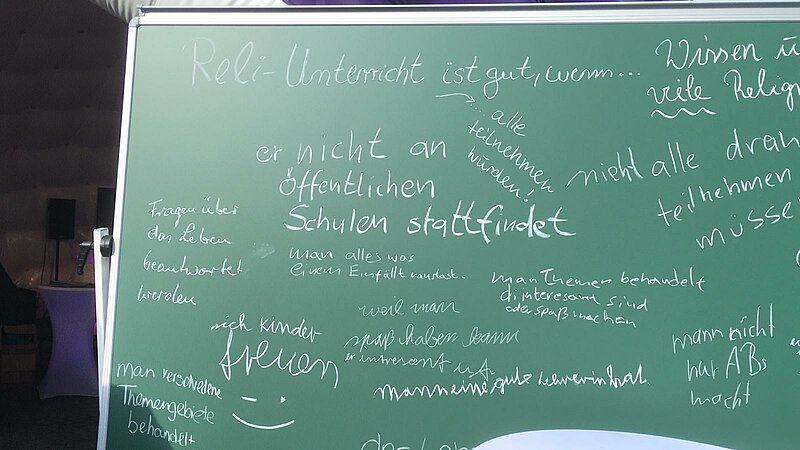 Reli-Unterricht ist gut, wenn...
Wissen ü
viele Relig
... alle
teilnehmen
würden!
er nicht an
öffentlichen
Schulen stattfindet
nicht alle dran
teilnehmen
müsse
Fragen über
das Leben
beantwortet
werden
man alles was
einem Einfällt
man Themen behandelt
di interesand sind
oder spaß machen
weil man
spaß haben kann
er interesant ist
sich Kinder
freuen
mann eine gute Lehrerin hat.
mann nicht
nur ABs
macht
man verschiedene
Themengebiete
behandelt